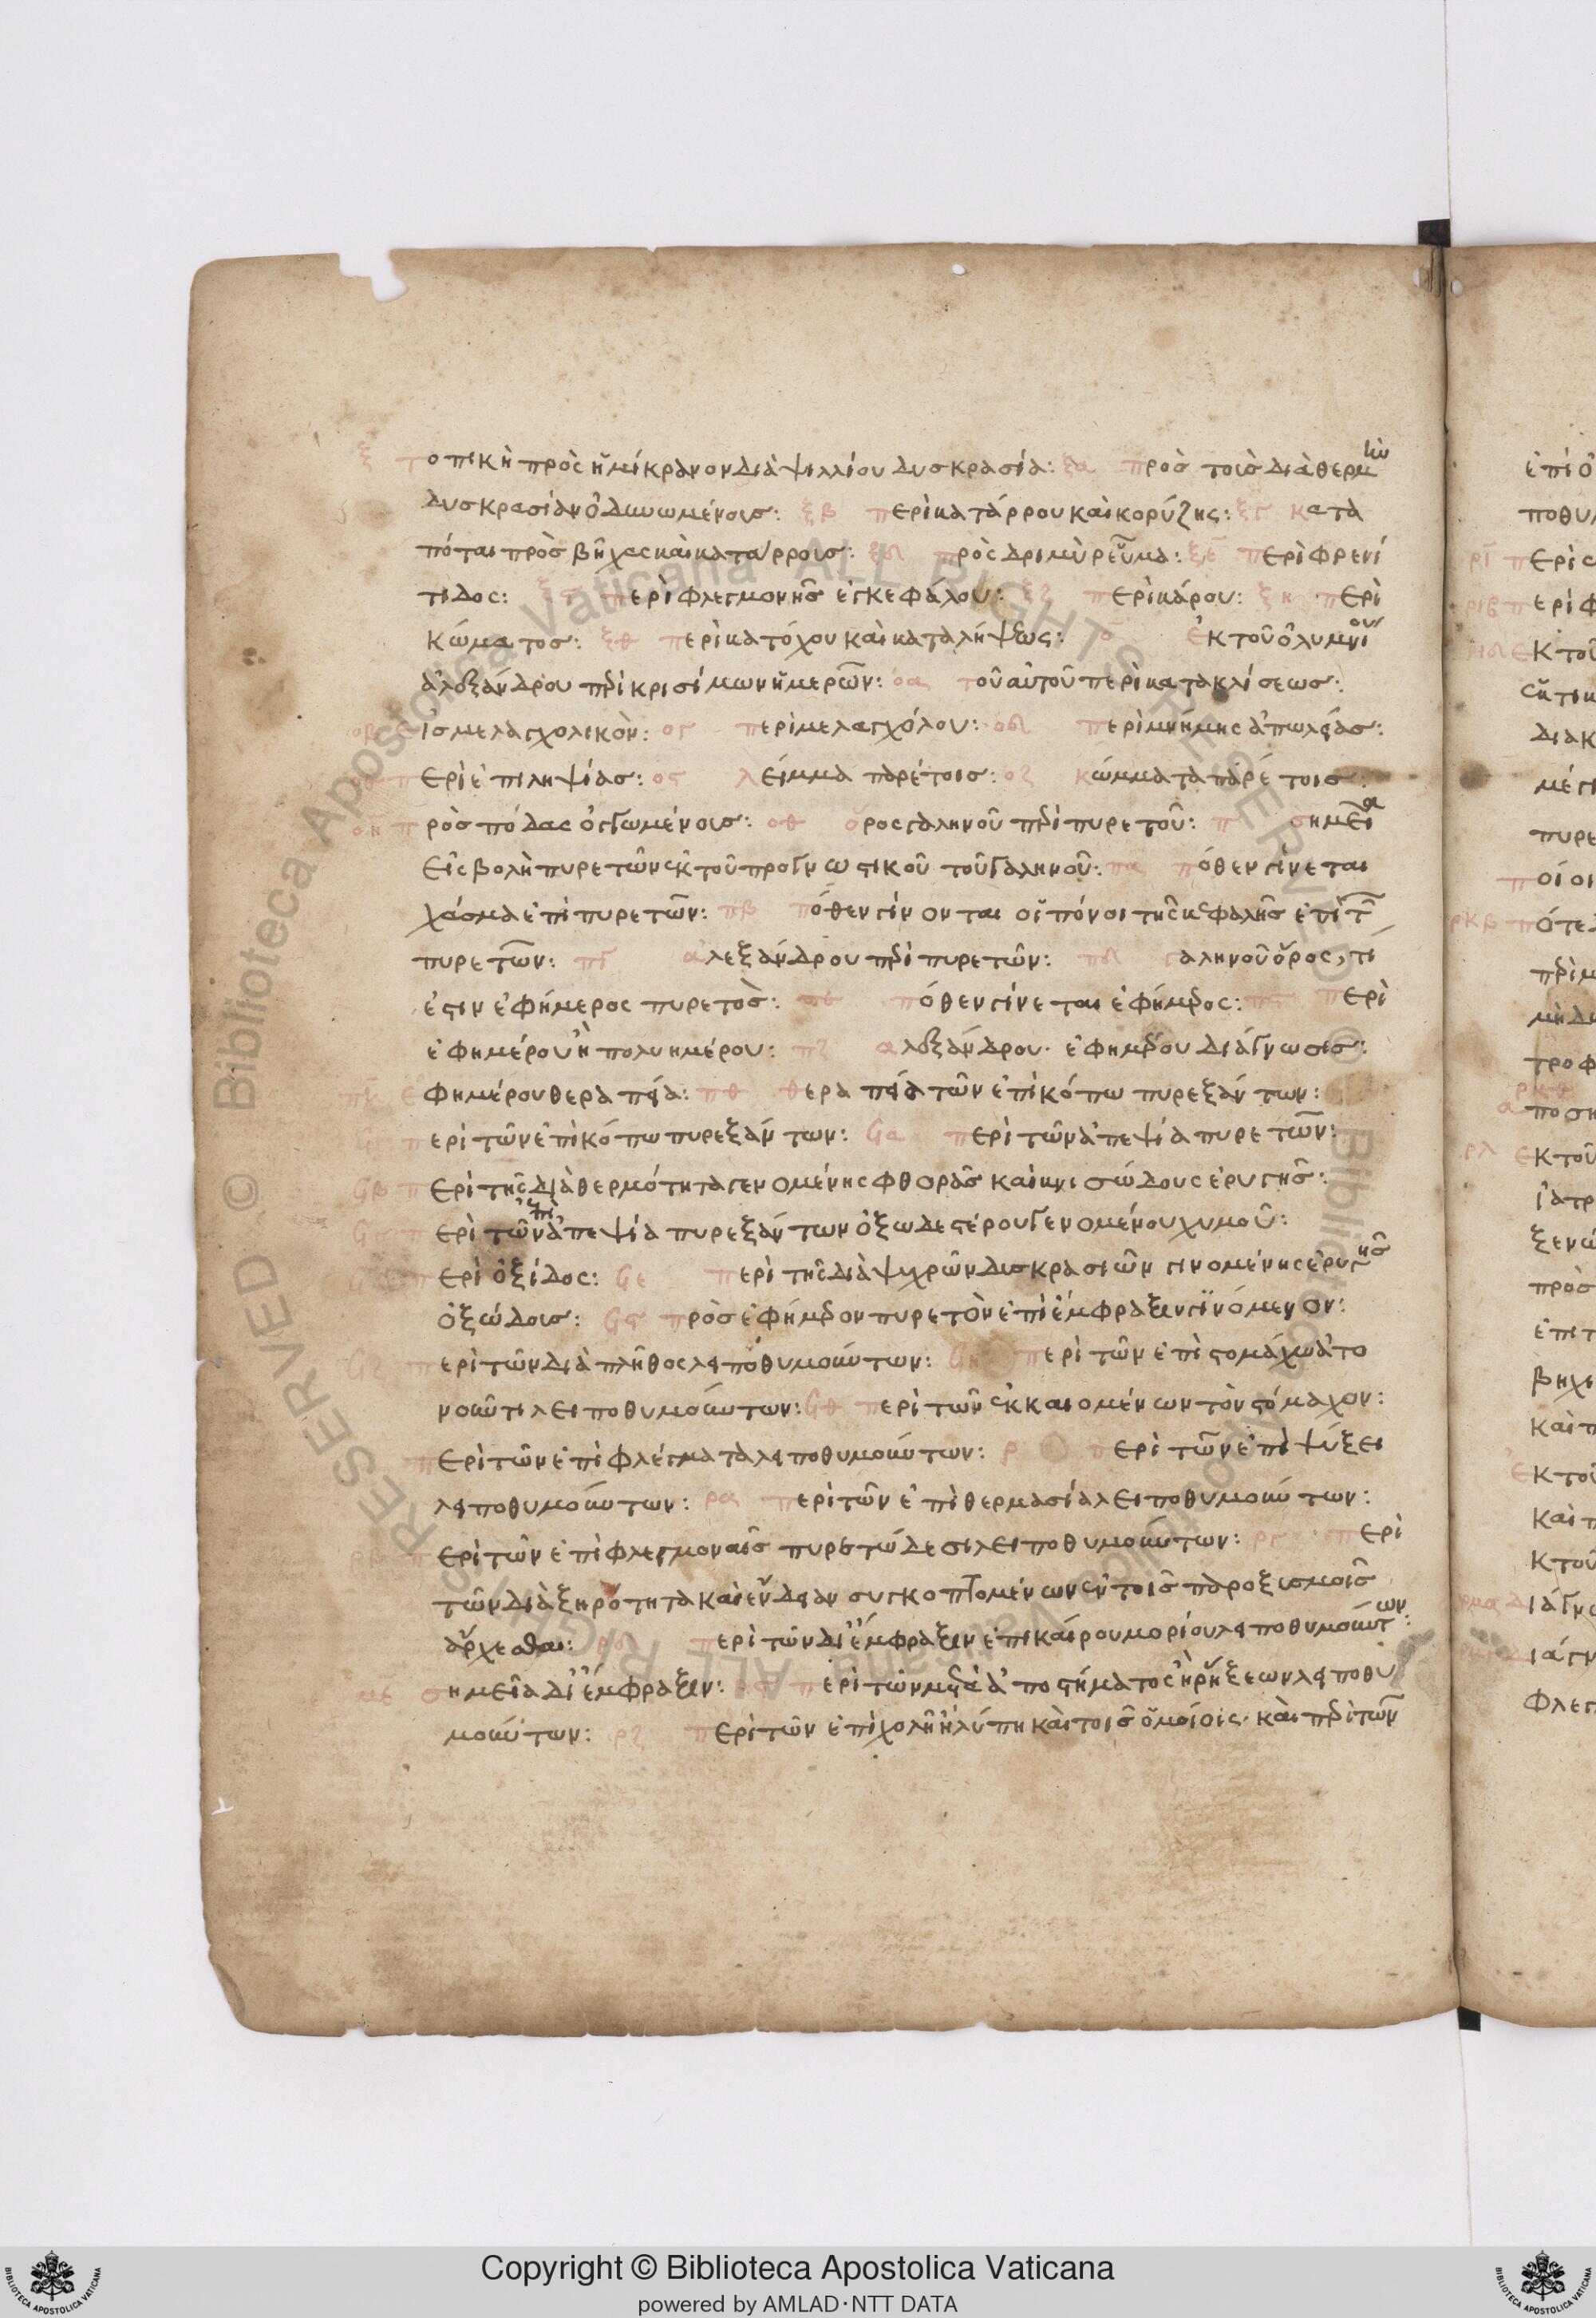 ξ τοπικὴ πρὸς ἡμίκρανον διὰ ψιλλίου δυσκρασία: ξα πρὸσ τοισ διὰ θερμὴν
δυσκρασίαν ὀδυνωμένοισ: ξβ περὶ κατάρρου καὶ κορύζης: ξγ κατὰ
πόται πρὸσ βῆχας καὶ κατάρροισ: ξδ πρὸς δριμὺ ρεῦμα: ξε περὶ φρενί
τιδος: ξς περὶ φλεγμονησ ἐγκεφάλου: ξζ περὶ κάρου: ξη περὶ
κώματοσ: ξθ περὶ κατόχου καὶ καταλήψεως: ο ἐκ τοῦ ὀλυμπίου
ἀλεξάνδρου περὶ κρισίμων ἡμερῶν: οα τοῦ αὐτοῦ περὶ κατακλίσεωσ:
οβ εἰσ μελαγχολικὸν: ογ περὶ μελαγχόλου: οδ περὶ μνήμης ἀπωλείασ:
οε περὶ ἐπιληψίασ: ος λεῖμμα παρέτοισ: οζ κώμματα παρέτοισ:
οη πρὸσ πόδας ὀγγωμένοισ: οθ ὅρος γαληνοῦ περὶ πυρετοῦ: π σημεῖα
εἰσβολὴ πυρετῶν ἐκ τοῦ προγνωστικοῦ τοῦ γαληνοῦ: πα πόθεν γίνεται
χάσμα ἐπὶ πυρετῶν: πβ πόθεν γίνονται οἱ πόνοι τῆς κεφαλῆσ ἐπὶ τῶν
πυρετῶν: πγ ἀλεξάνδρου περὶ πυρετῶν: πδ γαληνοῦ ὅρος, τί
ἐστιν ἐφήμερος πυρετὸσ: πε πόθεν γίνεται ἐφήμερος: πς περὶ
ἐφημέρου ἢ πολυημέρου: πζ αλεξάνδρου· ἐφημέρου διάγνωσισ:
πη ἐφημέρου θεραπεία: πθ θεραπεία τῶν ἐπὶ κόπω πυρεξάντων:
Ϟ περὶ τῶν ἐπὶ κόπω πυρεξάντων: Ϟα περὶ τῶν ἀπεψία πυρετῶν:
Ϟβ περὶ τῆς διὰ θερμότητα γενομένης φθορᾶσ καὶ κνισώδους ἐρυγῆσ:
Ϟγ περὶ τῶν ἐπὶ ἀπεψία πυρεξάντων ὀξωδεστέρου γενομένου χυμοῦ:
Ϟδ περὶ ὀξίδος: Ϟε περὶ τῆς διὰ ψυχρῶν δισκρασιῶν γινομένης ἐρυγῆσ
ὀξώδοισ: Ϟς πρὸσ ἐφήμερον πυρετὸν ἐπὶ ἐμφραξιν γινόμενον:
Ϟζ περὶ τῶν διὰ πλῆθος λειποθυμούντων: Ϟη περὶ τῶν ἐπὶ στομάχω ἀτο
νοῦντι λειποθυμούντων: Ϟθ περὶ τῶν ἐκκαιομένων τὸν στόμαχον:
περὶ τῶν ἐπὶ φλέγματα λειποθυμούντων: ρ περὶ τῶν ἐπὶ ψύξει
λειποθυμούντων: ρα περὶ τῶν ἐπὶ θερμασία λειποθυμούντων:
ρβ περὶ τῶν ἐπὶ φλεγμοναῖσ πυρετώδεσι λειποθυμούντων: ργ περὶ
τῶν διὰ ξηρότητα καὶ ἔνδειαν συγκοπτομένων ἐν τοῖσ παροξισμοῖσ
ἄρχεσθαι: ρδ περὶ τῶν δι' ἔμφραξιν ἐπικαίρου μορίου λειποθυμούντων:
ρε σημεῖα δι' ἔμφραξιν: ρς περὶ τῶν μετὰ ἀποστήματος ἢ ρήξεων λειποθυ
μούντων: ρζ περὶ τῶν ἐπὶ χολῆ ἢ λύπη καὶ τοῖσ ὁμοίοις· καὶ περὶ τῶν
Copyright © Biblioteca Apostolica Vaticana
powered by AMLAD·NTT DATA